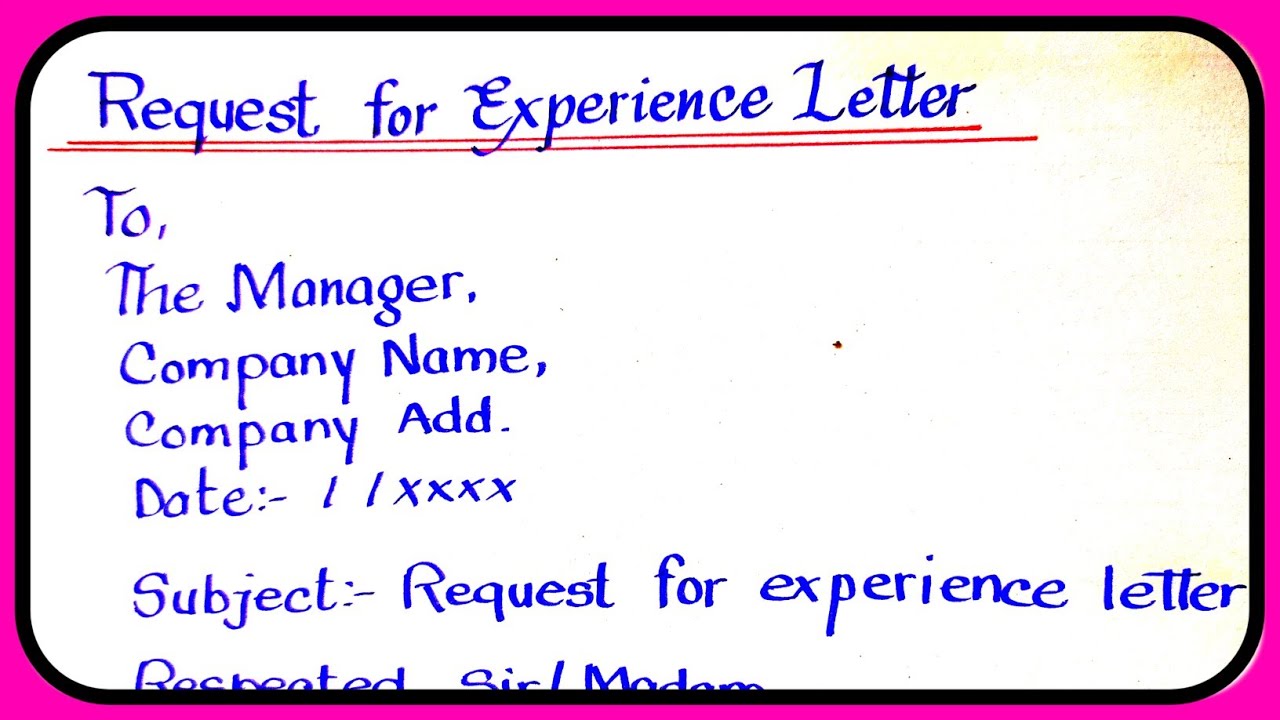 Request for Experience Letter
To,
The Manager,
Company Name,
Company Add.
Date:- / /xxxx
Subject:- Request for experience letter
Respeated Sir/Madam